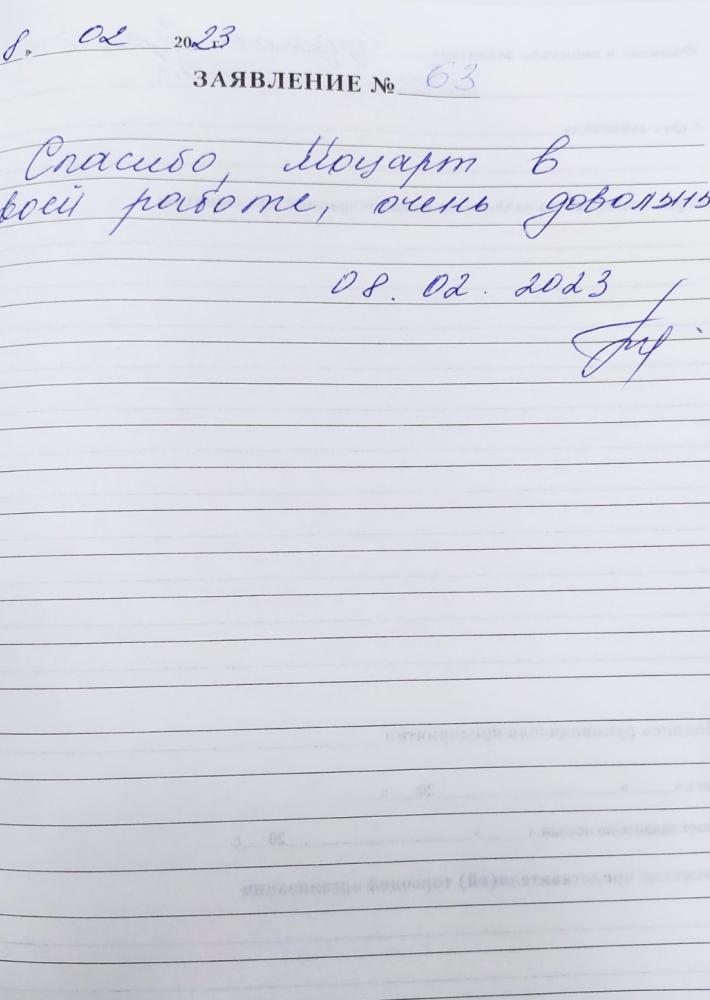 8. 02 2023 г.
ЗАЯВЛЕНИЕ № 63
Спасибо, Моцарт в
воей работе, очень довольны
08. 02. 2023